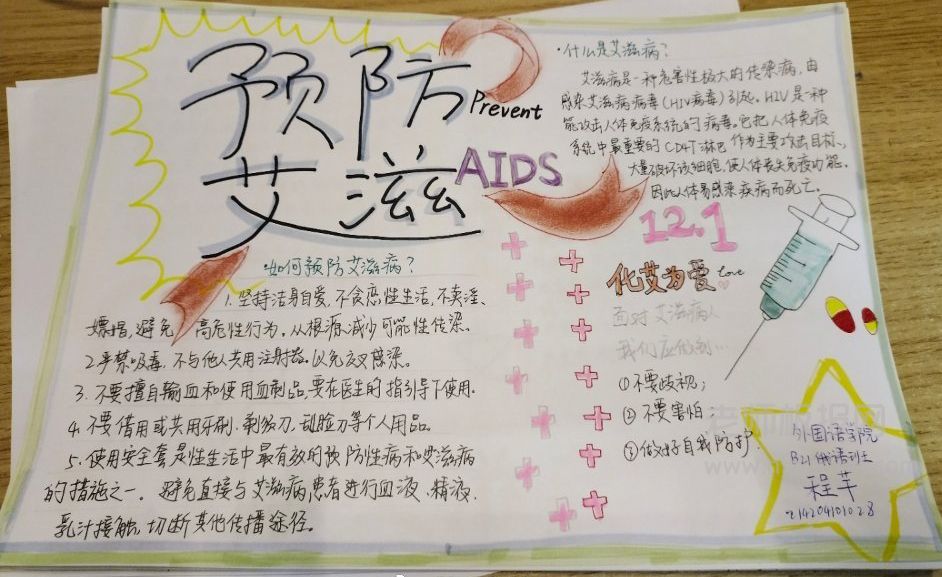 预防
艾滋
Prevent
AIDS
·什么是艾滋病?
艾滋病是一种危害性极大的传染病,由
感染艾滋病病毒(HIV病毒)引起。HIV是一种
能攻击人体免疫系统的病毒。它把人体免疫
系统中最重要的CD4T淋巴 作为主要攻击目标、
大量破坏该细胞,使人体丧失免疫功能。
因此人体易感染疾病而死亡。
12.1
化艾为爱 love
面对艾滋病人
我们应做到…
①不要歧视;
②不要害怕;
③做好自我防护.
·如何预防艾滋病?
1.坚持洁身自爱,不贪恋性生活,不卖淫、
嫖娼,避免 高危性行为。从根源减少可能性传染。
2.严禁吸毒,不与他人共用注射器。以免交叉感染。
3.不要擅自输血和使用血制品,要在医生的指引导下使用.
4.不要借用或共用牙刷、剃须刀、刮脸刀等个人用品。
5.使用安全套是性生活中最有效的预防性病和艾滋病
的措施之一。避免直接与艾滋病患者进行血液、精液、
乳汁接触,切断其他传播途径。
外国语学院
B21俄语班
程芊
214204101028